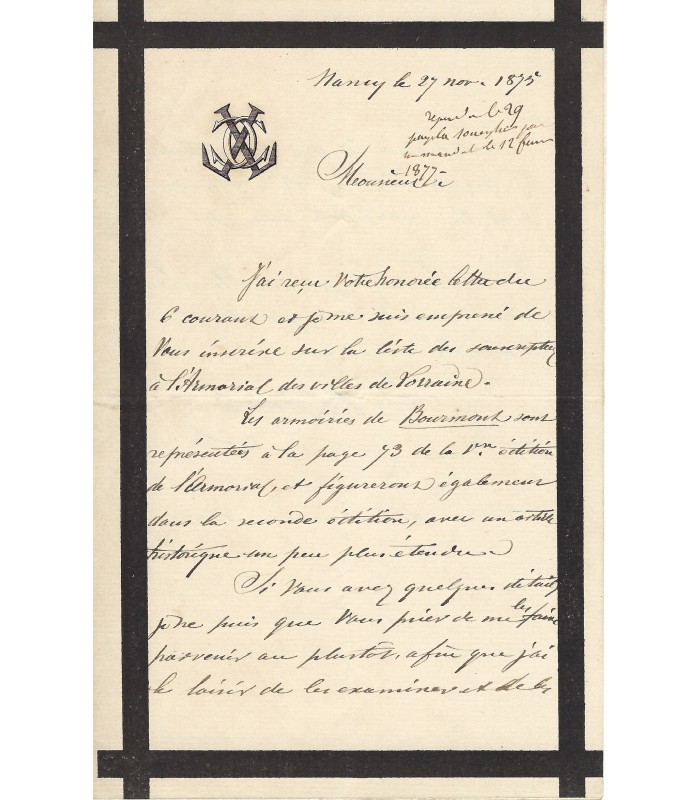 Nancy le 27 nov. 1875
repondu le 29
payé la souscription par
un mandat le 12 février
1877
Monsieur
J'ai reçu Votre honorée lettre du
6 courant et je me suis empressé de
Vous inscrire sur la liste des souscripteurs
à l'Armorial des villes de Lorraine.
Les armoiries de Bourmont sont
représentées à la page 73 de la 1re édition
de l'Armorial, et figureront également
dans la seconde édition, avec un article
historique un peu plus étendu.
Si Vous avez quelques détails
je ne puis que Vous prier de me les faire
parvenir au plustôt, afin que j'ai
le loisir de les examiner et de les